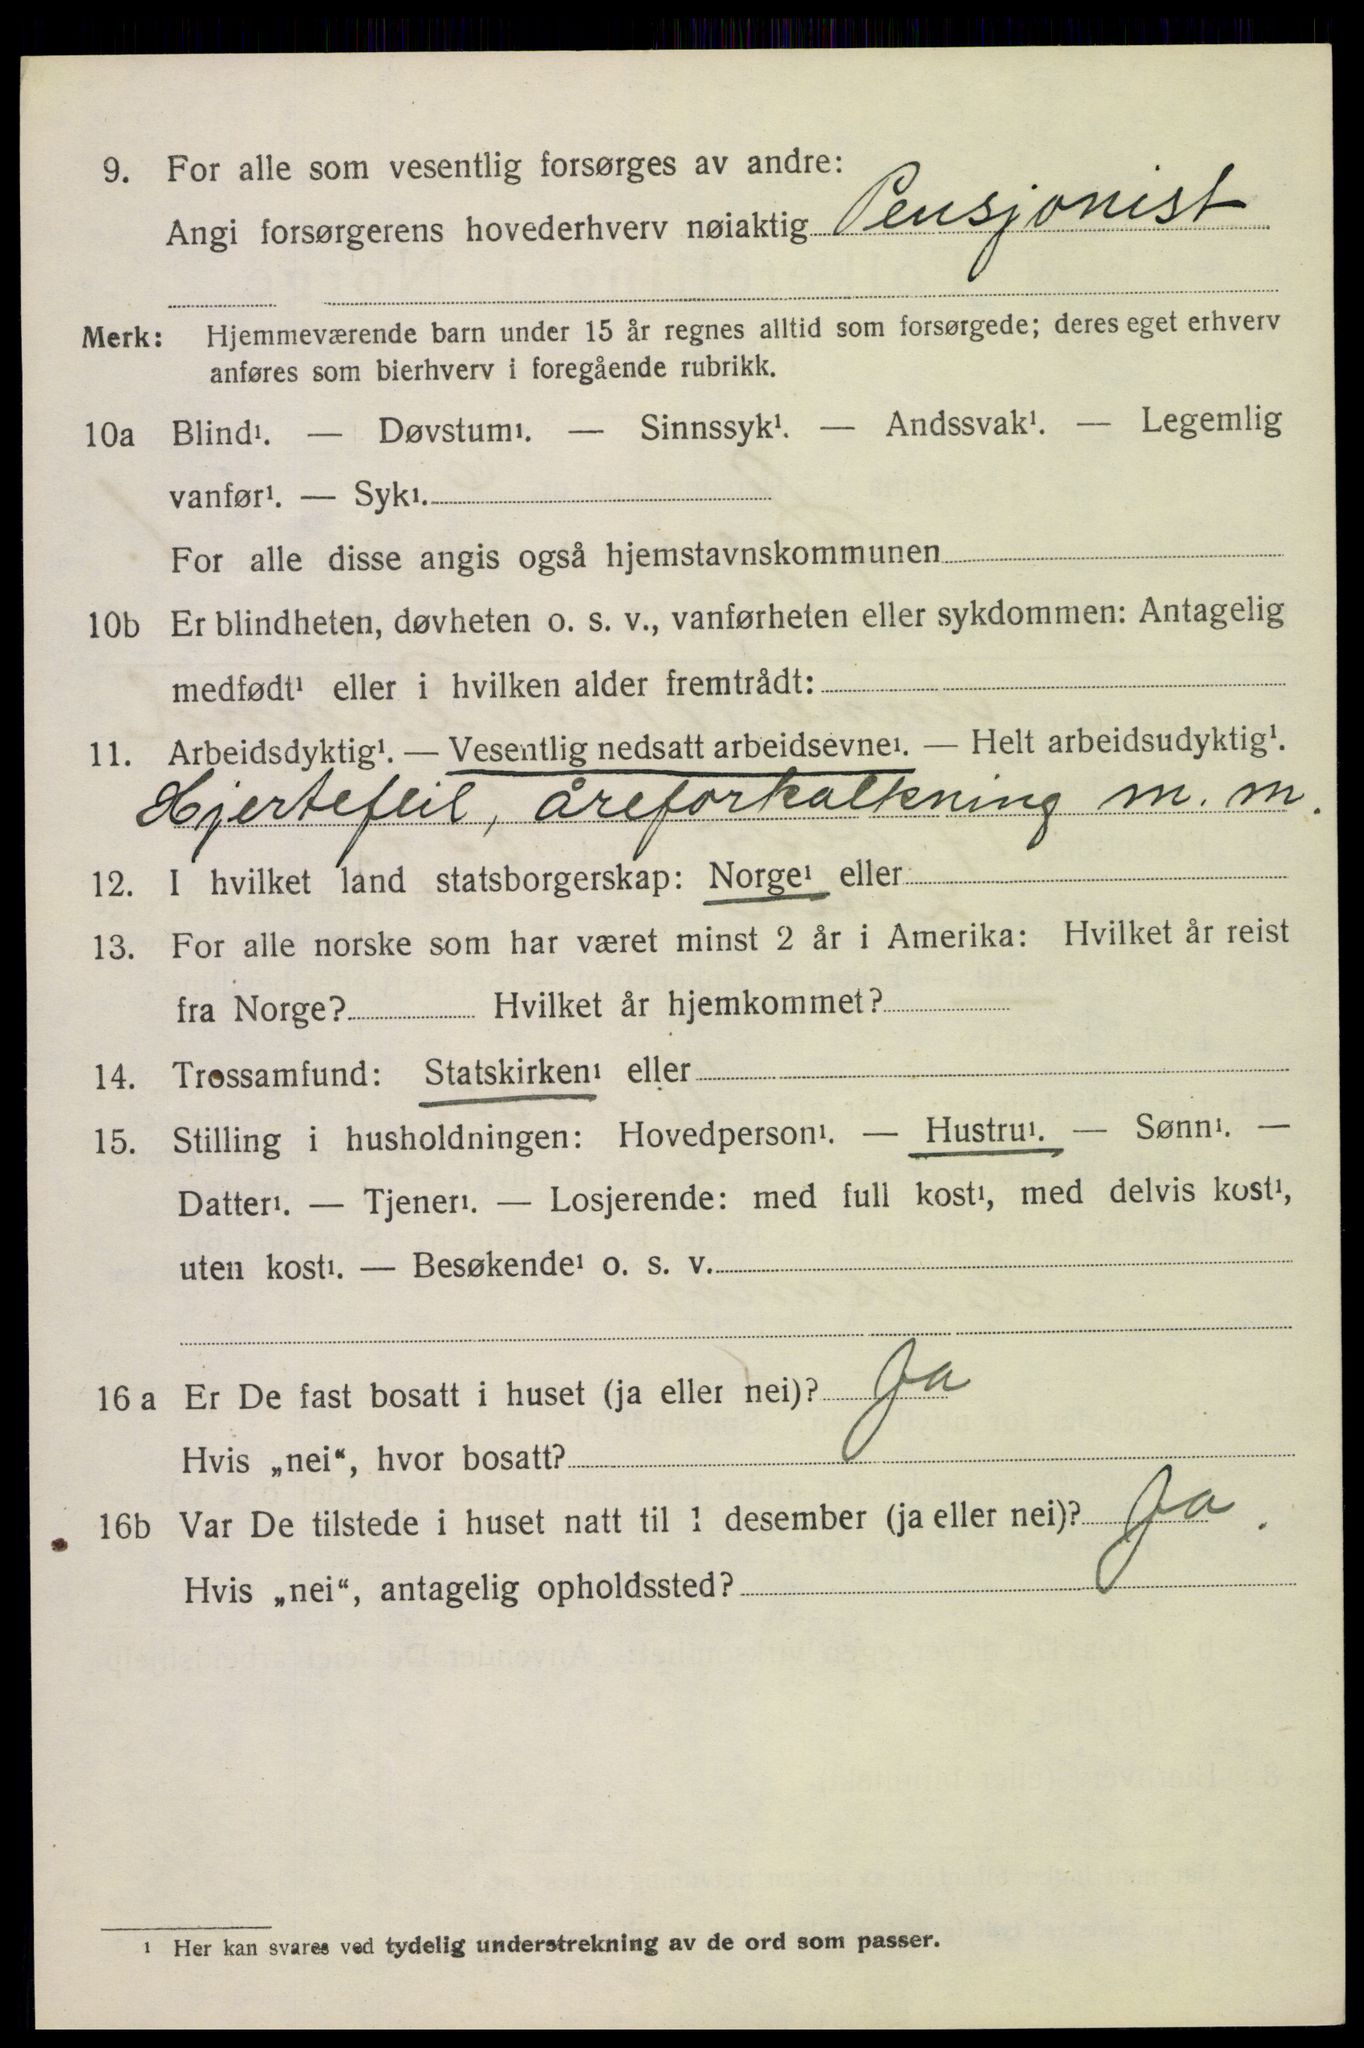 9. For alle som vesentlig forsørges av andre:
Angi forsørgerens hovederhverv nøiaktig Pensjonist
Merk: Hjemmeværende barn under 15 år regnes alltid som forsørgede; deres eget erhverv
anføres som bierhverv i foregående rubrikk.
10a Blind¹. — Døvstum¹. — Sinnssyk¹. — Andssvak¹. — Legemlig
vanfør¹. — Syk¹.
For alle disse angis også hjemstavnskommunen
10b Er blindheten, døvheten o. s. v., vanførheten eller sykdommen: Antagelig
medfødt¹ eller i hvilken alder fremtrådt:
11. Arbeidsdyktig¹. — Vesentlig nedsatt arbeidsevne¹. — Helt arbeidsudyktig¹.
Hjertefeil, åreforkalkning m. m.
12. I hvilket land statsborgerskap: Norge¹ eller
13. For alle norske som har været minst 2 år i Amerika: Hvilket år reist
fra Norge? Hvilket år hjemkommet?
14. Trossamfund: Statskirken¹ eller
15. Stilling i husholdningen: Hovedperson¹. — Hustru¹. — Sønn¹. —
Datter¹. — Tjener¹. — Losjerende: med full kost¹, med delvis kost¹,
uten kost¹. — Besøkende¹ o. s. v.
16 a Er De fast bosatt i huset (ja eller nei)? Ja
Hvis „nei“, hvor bosatt?
16b Var De tilstede i huset natt til 1 desember (ja eller nei)? Ja.
Hvis „nei“, antagelig opholdssted?
¹ Her kan svares ved tydelig understrekning av de ord som passer.